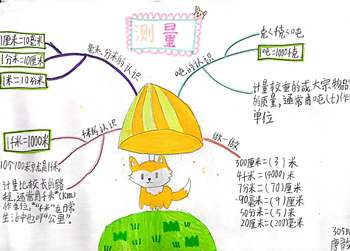 测量
1厘米=10毫米
1分米=10厘米
1米=10分米
毫米、分米的认识
千米的认识
1千米=1000米
10个100米就是1千米。
计量比较长的路
程,通常用千米(km)
作单位。"千米"在日常
生活中也叫"公里"。
吨的认识
克<千克<吨
1吨=1000千克
计量较重的或大宗物品
的质量,通常用吨(t)作
单位
做一做
300厘米=(3)米
4千米=(4000)米
7分米=(70)厘米
90毫米=(9)厘米
50分米=(5)米
20厘米=(200)毫米